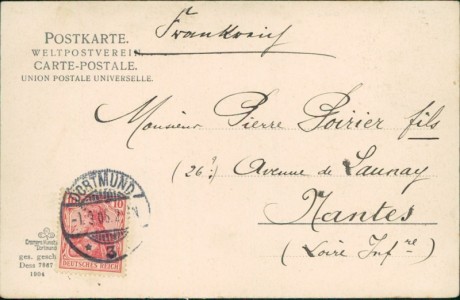 POSTKARTE.
WELTPOSTVEREIN.
CARTE-POSTALE.
UNION POSTALE UNIVERSELLE.
Frankreich
Monsieur Pierre Poirier fils
(26 Avenue de Launay
Nantes
(Loire Infre)
DORTMUND
-1.3.06.
* 3
10
DEUTSCHES REICH
Dortmund
ges. gesch
Dess 7887
1904